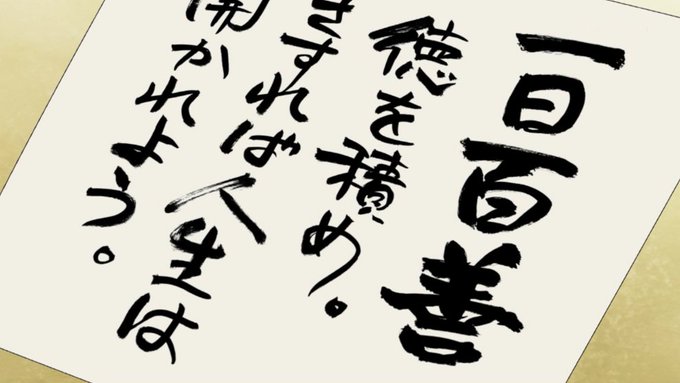 一日百善
徳を積め。
さすれば人生は
開かれよう。